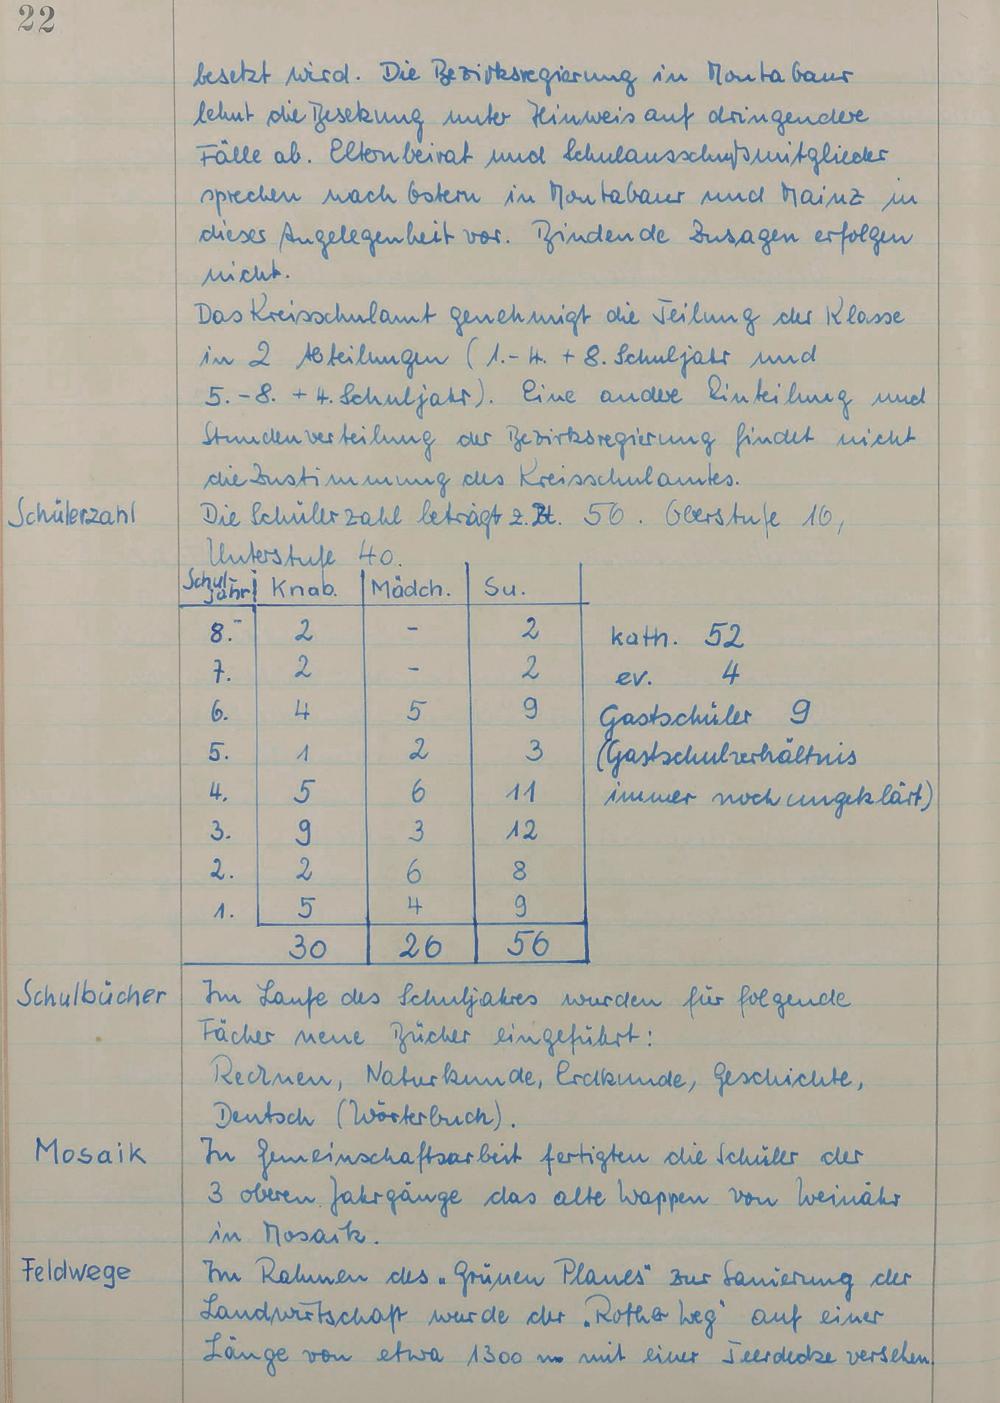 22
besetzt wird. Die Bezirksregierung in Montabaur
lehnt die Besetzung unter Hinweis auf dringendere
Fälle ab. Elternbeirat und Schulausschußmitglieder
sprechen nach Ostern in Montabaur und Mainz in
dieser Angelegenheit vor. Bindende Zusagen erfolgen
nicht.
Das Kreisschulamt genehmigt die Teilung der Klasse
in 2 Abteilungen (1.-4. + 8. Schuljahr und
5.-8. + 4. Schuljahr). Eine andere Einteilung und
Stundenverteilung der Bezirksregierung findet nicht
die Zustimmung des Kreisschulamtes.
Schülerzahl Die Schülerzahl beträgt z. Zt. 56. Oberstufe 16,
Unterstufe 40.
Schul-jahr Knab. Mädch. Su.
8. 2 - 2 kath. 52
7. 2 - 2 ev. 4
6. 4 5 9 Gastschüler 9
5. 1 2 3 (Gastschulverhältnis
4. 5 6 11 immer noch ungeklärt)
3. 9 3 12
2. 2 6 8
1. 5 4 9
30 26 56
Schulbücher Im Laufe des Schuljahres wurden für folgende
Fächer neue Bücher eingeführt:
Rechnen, Naturkunde, Erdkunde, Geschichte,
Deutsch (Wörterbuch).
Mosaik In Gemeinschaftsarbeit fertigten die Schüler der
3 oberen Jahrgänge das alte Wappen von Weinähr
in Mosaik.
Feldwege Im Rahmen des „Grünen Planes" zur Sanierung der
Landwirtschaft wurde der „Rother Weg" auf einer
Länge von etwa 1300 m mit einer Teerdecke versehen.